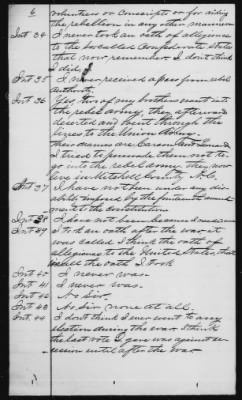 6
volunteers or conscripts or for aiding
the rebellion in any other manner
Int 34 I never took an oath of allegiance
to the so called Confederate States
that now remember I dont think
I did
Int 35 I never received a pass from rebel
Authority.
Int 36 Yes, two of my brothers went into
the rebel army, they afterward
deserted and went through the
lines to the Union Army.
their names are Carson and James
I tried to persuade them not to
go into the rebel army they now
live in Mitchell County N.C.
Int 37 I have not been under any dis
ability imposed by the fourteenth amend
ment to the constitution.
Int 38 I have not been
Int 39 I took an oath after the war it
was called I think the oath of
allegiance to the United States, that
was all the oath I took
Int 40 I never was.
Int 41 I never was.
Int 42 No Sir.
Int 43 No Sir none at all.
Int 44 I dont think I ever went to any
election during the war I think
the last vote I gave was against se-
cession until after the war